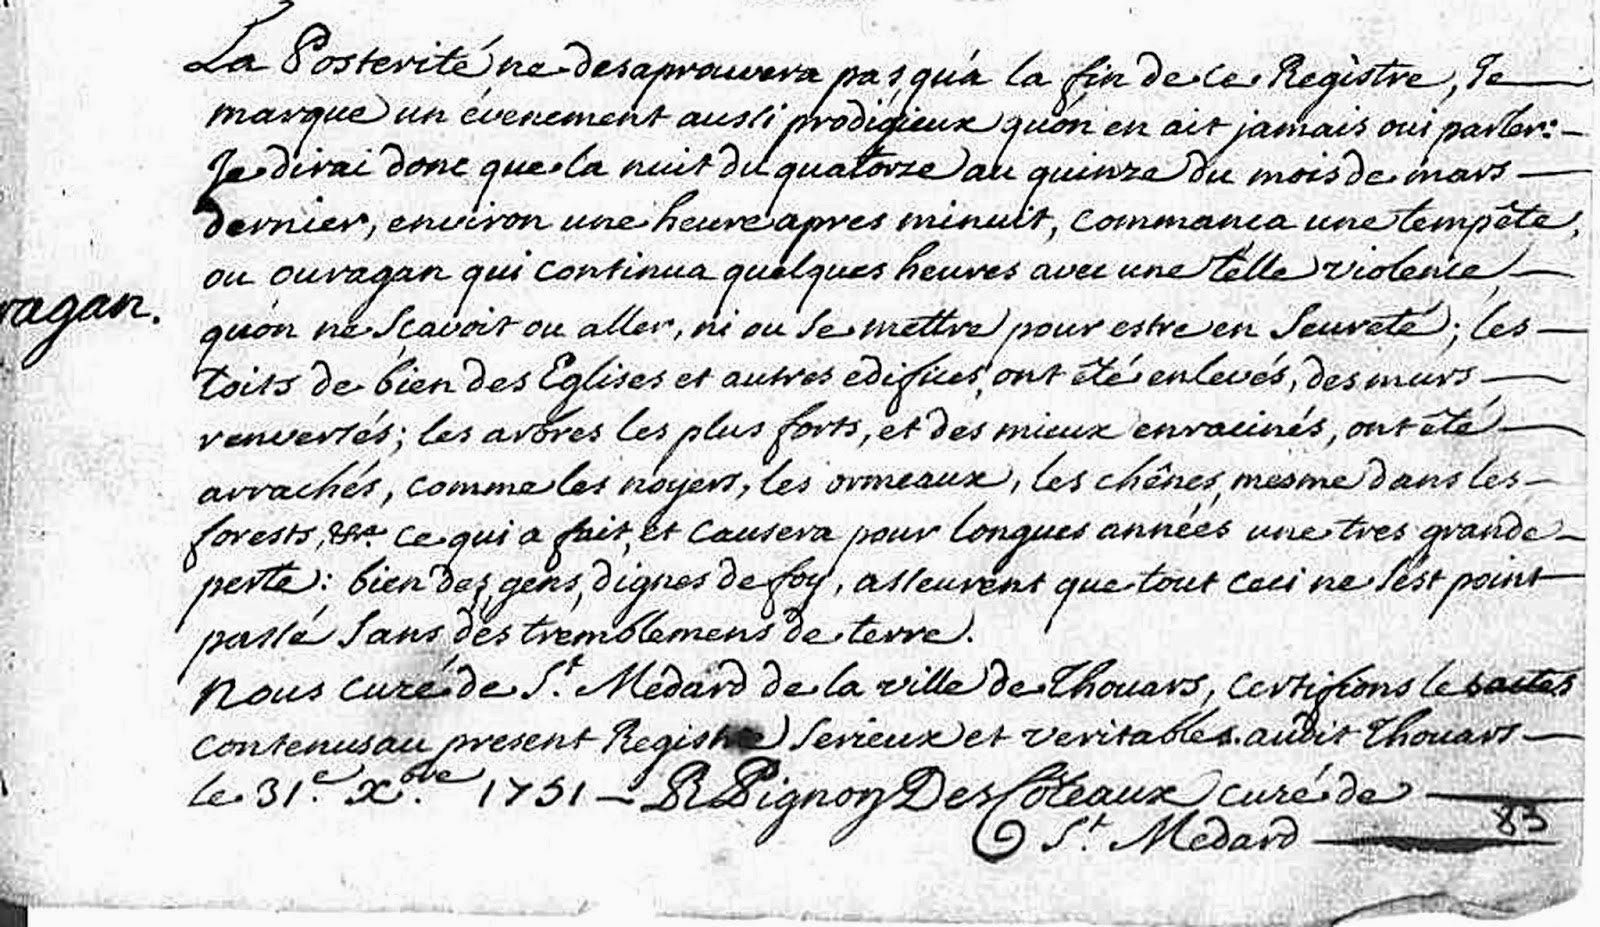 La Posterité ne desaprouvera pas, qu'a la fin de ce Registre, Je
marque un évenement aussi prodigieux qu'on en ait jamais oui parler:
Je dirai donc que la nuit du quatorze au quinze du mois de mars
dernier, environ une heure apres minuit, commança une tempête,
ou ouragan qui continua quelques heures avec une telle violence,
ragan.
qu'on ne sçavoit ou aller, ni ou se mettre pour estre en seureté; les
toits de bien des Eglises et autres edifices, ont été enlevés, des murs
renversés; les arbres les plus forts, et des mieux enracinés, ont été
arrachés, comme les noyers, les ormeaux, les chênes, mesme dans les
forests, &a. ce qui a fait, et causera pour longues années une tres grande
perte: bien des gens, dignes de foy, asseurent que tout ceci ne s'est point
passé sans des tremblemens de terre.
Nous curé de St. Médard de la ville de Thouars, certifions les actes
contenus au present Registre serieux et veritables. audit Thouars
le 31.e Xbre 1751 – Pignon Des Coteaux curé de
St. Médard
83